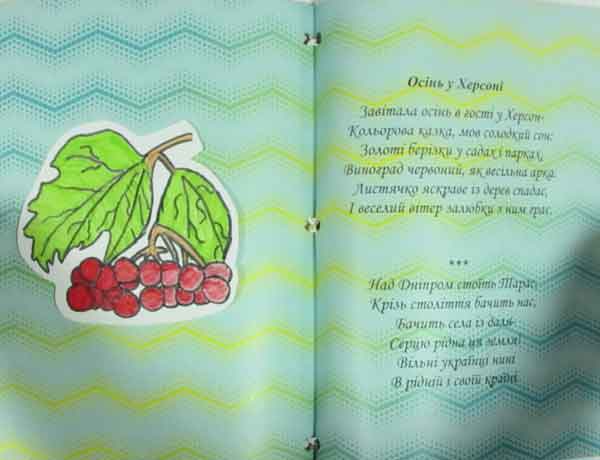 Осінь у Херсоні
Завітала осінь в гості у Херсон-
Кольорова казка, мов солодкий сон:
Золоті берізки у садах і парках,
Виноград червоний, як весільна арка.
Листячко яскраве із дерев спадає,
І веселий вітер залюбки з ним грає.
***
Над Дніпром стоїть Тарас,
Крізь століття бачить нас,
Бачить села із даля-
Серцю рідна ця земля!
Вільні українці нині
В рідній і своїй країні.